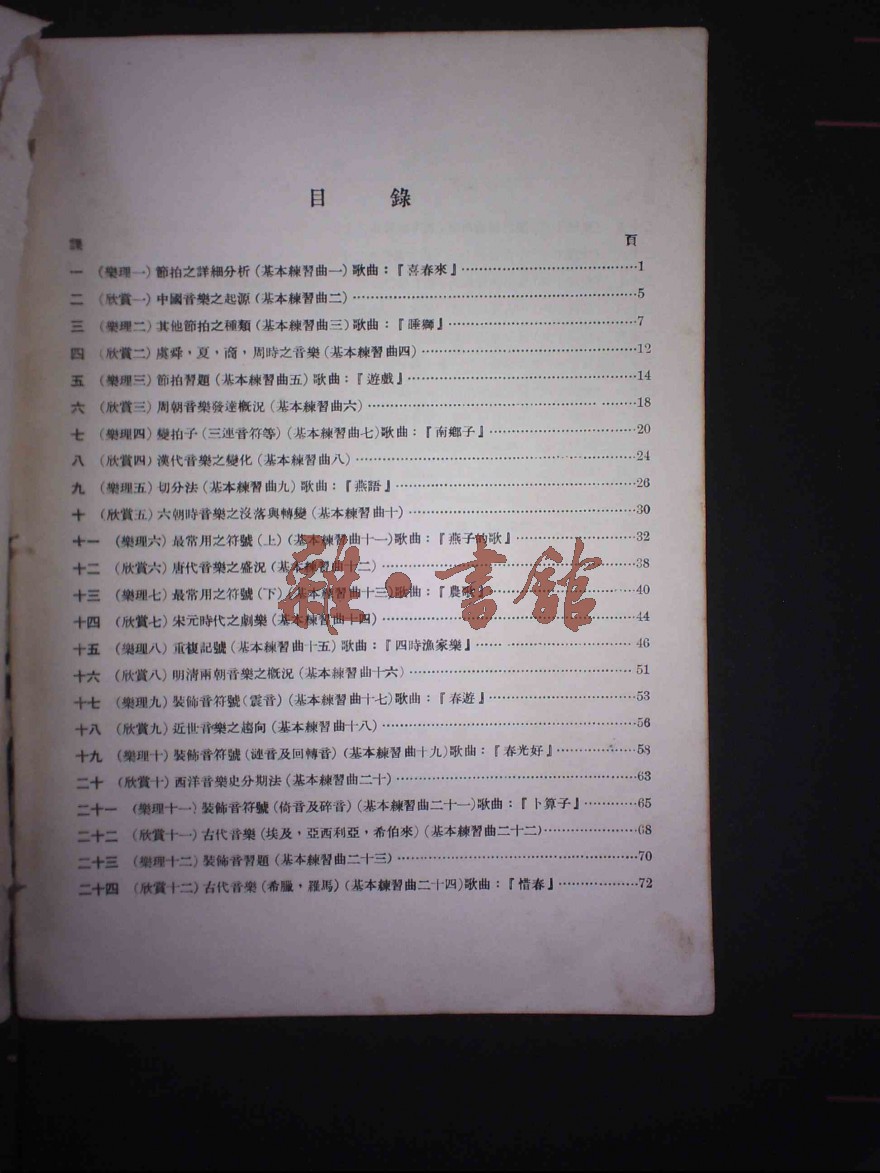 目　錄
課　頁
一 (樂理一) 節拍之詳細分析 (基本練習曲一) 歌曲：『喜春來』……1
二 (欣賞一) 中國音樂之起源 (基本練習曲二)……5
三 (樂理二) 其他節拍之種類 (基本練習曲三) 歌曲：『睡獅』……7
四 (欣賞二) 虞舜，夏，商，周時之音樂 (基本練習曲四)……12
五 (樂理三) 節拍習題 (基本練習曲五) 歌曲：『遊戲』……14
六 (欣賞三) 周朝音樂發達概況 (基本練習曲六)……18
七 (樂理四) 變拍子 (三連音符等) (基本練習曲七) 歌曲：『南鄉子』……20
八 (欣賞四) 漢代音樂之變化 (基本練習曲八)……24
九 (樂理五) 切分法 (基本練習曲九) 歌曲：『燕語』……26
十 (欣賞五) 六朝時音樂之沒落與轉變 (基本練習曲十)……30
十一 (樂理六) 最常用之符號 (上) (基本練習曲十一) 歌曲：『燕子的歌』……32
十二 (欣賞六) 唐代音樂之盛況 (基本練習曲十二)……38
十三 (樂理七) 最常用之符號 (下) (基本練習曲十三) 歌曲：『農歌』……40
十四 (欣賞七) 宋元時代之劇樂 (基本練習曲十四)……44
十五 (樂理八) 重複記號 (基本練習曲十五) 歌曲：『四時漁家樂』……46
十六 (欣賞八) 明清兩朝音樂之概況 (基本練習曲十六)……51
十七 (樂理九) 裝飾音符號 (震音) (基本練習曲十七) 歌曲：『春遊』……53
十八 (欣賞九) 近世音樂之趨向 (基本練習曲十八)……56
十九 (樂理十) 裝飾音符號 (漣音及回轉音) (基本練習曲十九) 歌曲：『春光好』……58
二十 (欣賞十) 西洋音樂史分期法 (基本練習曲二十)……63
二十一 (樂理十一) 裝飾音符號 (倚音及碎音) (基本練習曲二十一) 歌曲：『卜算子』……65
二十二 (欣賞十一) 古代音樂 (埃及，亞西利亞，希伯來) (基本練習曲二十二)……68
二十三 (樂理十二) 裝飾音習題 (基本練習曲二十三)……70
二十四 (欣賞十二) 古代音樂 (希臘，羅馬) (基本練習曲二十四) 歌曲：『惜春』……72
雜·書館